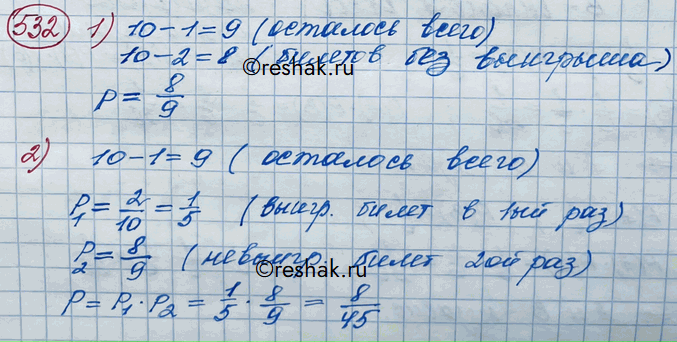 532 1) 10-1=9 (осталось всего)
10-2=8 (билетов без выигрыша)
©reshak.ru
P= 8/9
2) 10-1=9 (осталось всего)
P₁= 2/10 = 1/5 (выигр. билет в 1ый раз)
P₂= 8/9 (невыигр. билет 2ой раз)
©reshak.ru
P= P₁·P₂ = 1/5 · 8/9 = 8/45